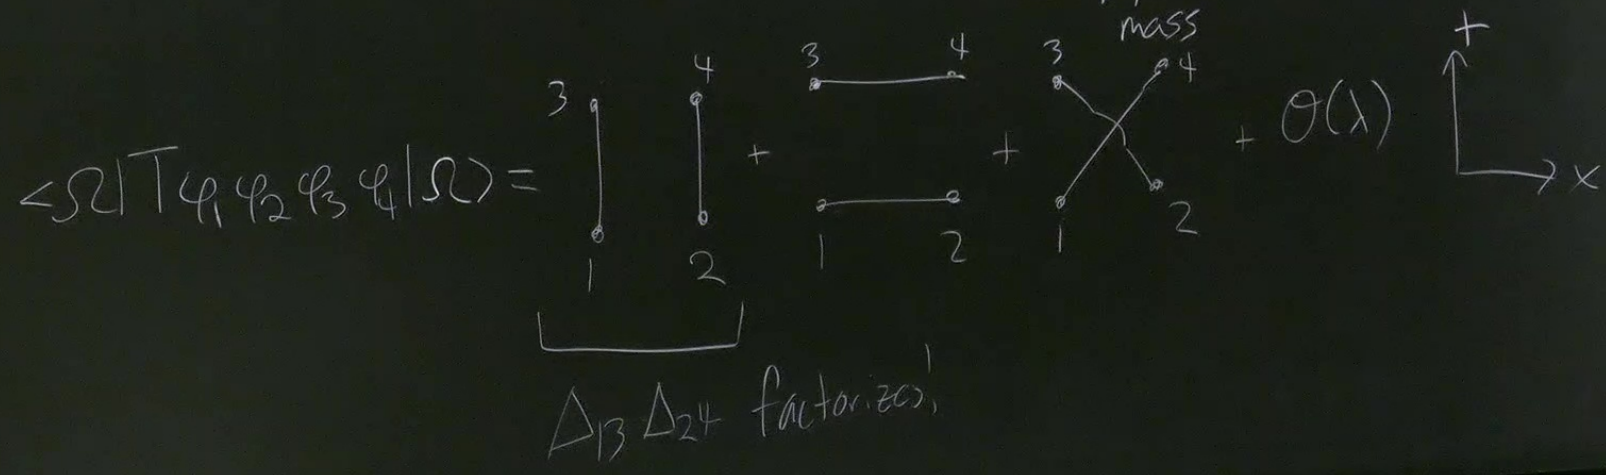 mass
<Ω|Tφ₁φ₂φ₃φ₄|Ω> = 3 1 4 2 + 3 4 1 2 + 3 4 1 2 + O(λ)
t
x
Δ₁₃ Δ₂₄ factorizes!